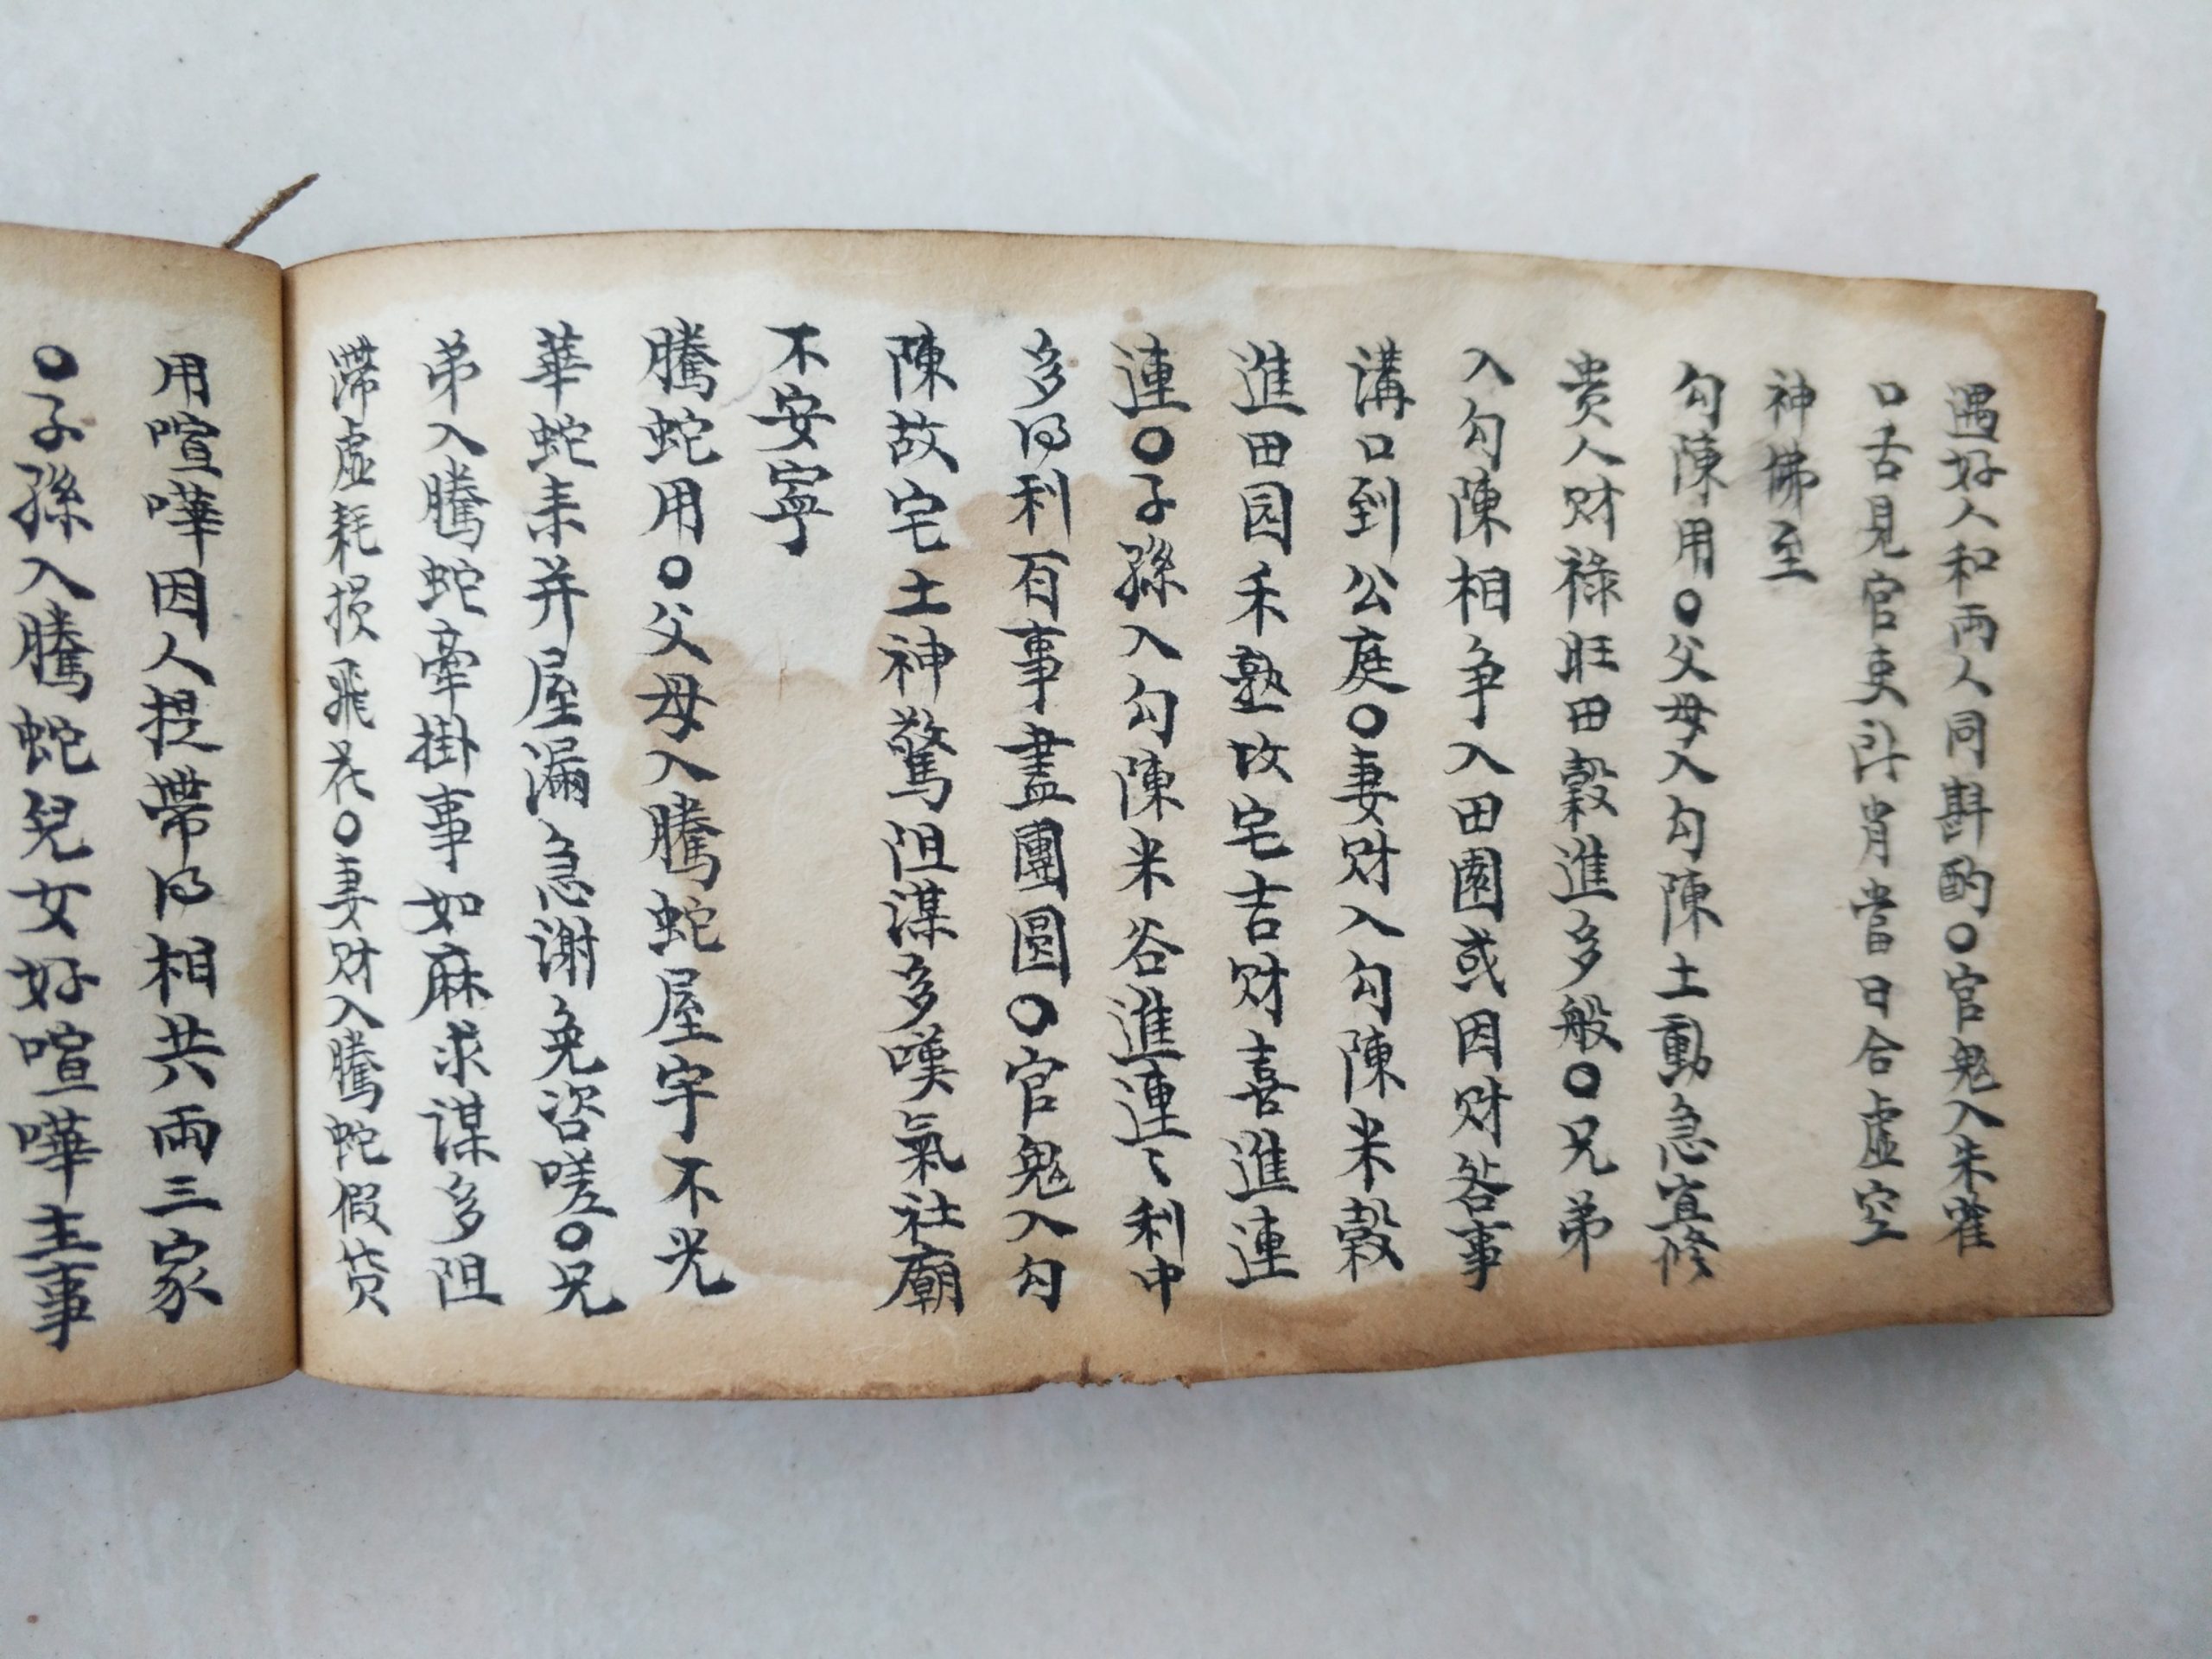 遇好人和両人同斟酌〇官鬼入朱雀
口舌見官吏 肖當日合虚空
神佛至
勾陳用〇父母入勾陳土動急宜修
贵人财祿旺田穀進多般〇兄弟
入勾陳相争入田園或因财事
溝口到公庭〇妻财入勾陳米穀
進田园禾熟改宅吉财喜進連
連〇子孫入勾陳米谷進連〻利中
多得利百事盡團圆〇官鬼入勾
陳故宅土神驚阻谋多嘆氣社廟
不安寧
騰蛇用〇父母入騰蛇屋宇不光
華蛇来并屋漏急谢免咨嗟〇兄
弟入騰蛇牽掛事如麻求谋多阻
滯虚耗损飛花〇妻财入騰蛇假货
用喧嘩因人提带得相共両三家
〇子孫入騰蛇兒女好喧嘩主事